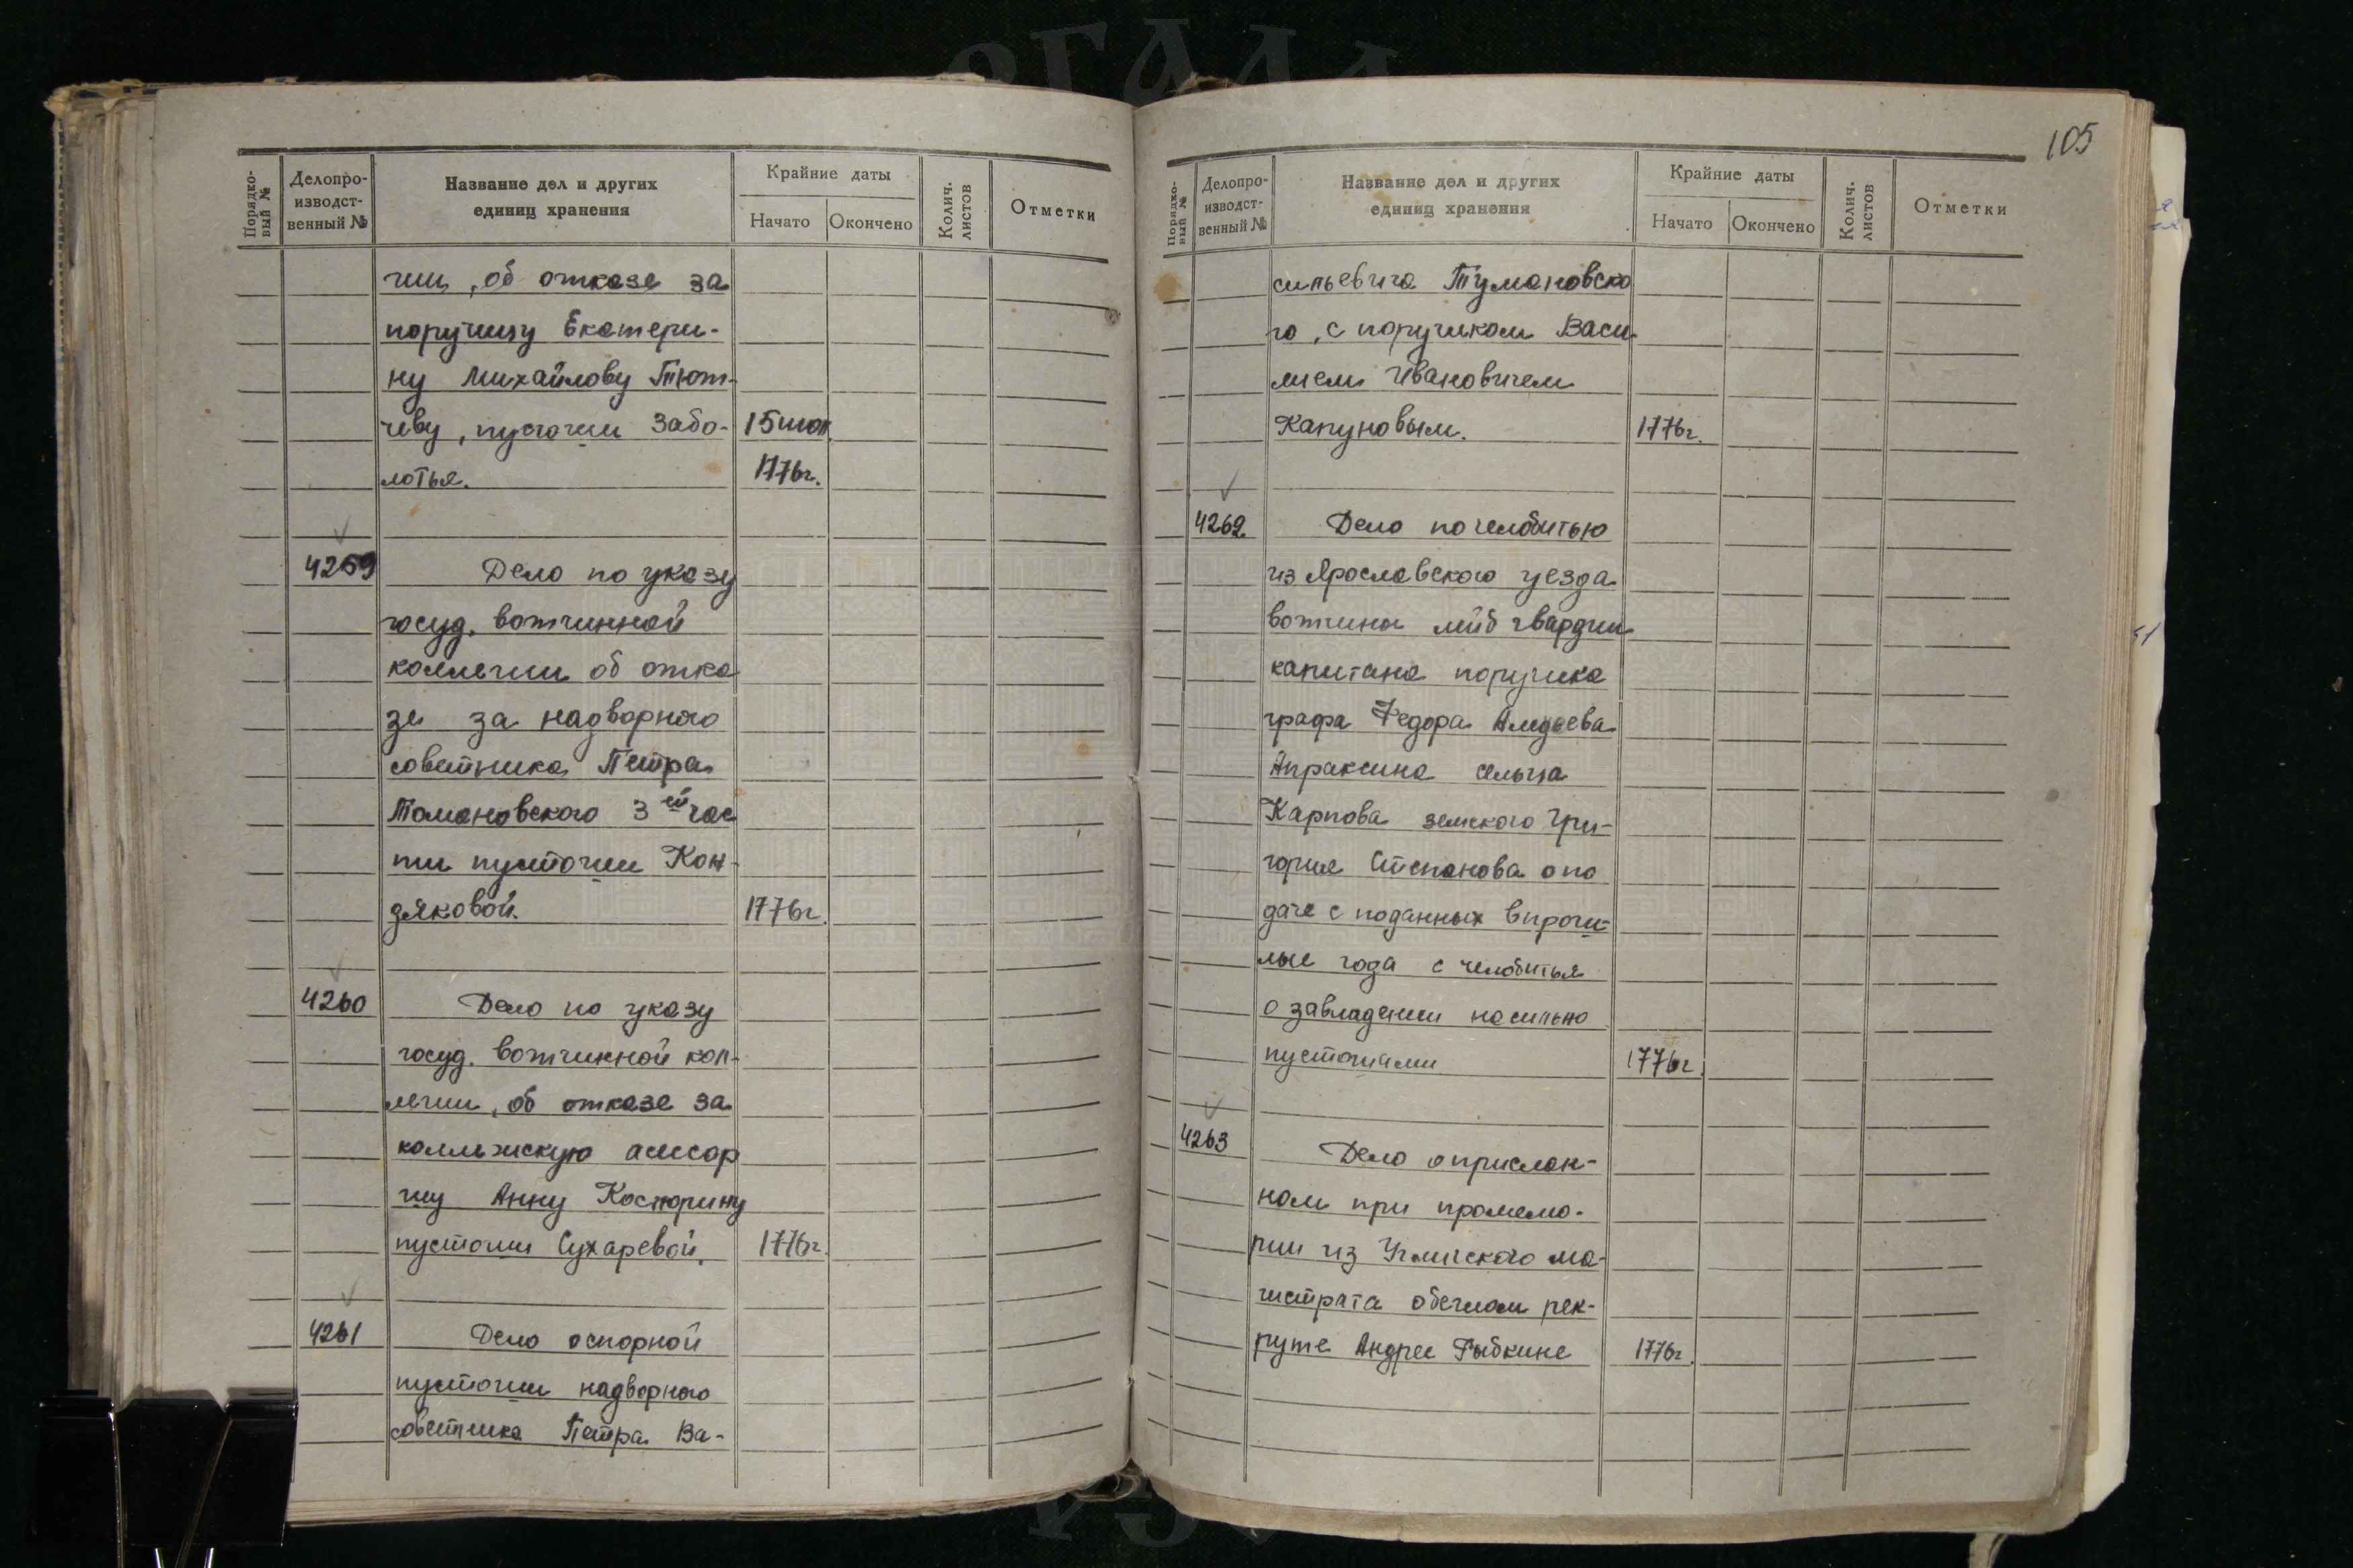 105
Порядко-
вый №
Делопро-
изводст-
венный №
Название дел и других
единиц хранения
Крайние даты
Начато
Окончено
Колич.
листов
Отметки
гии, об отказе за
поручицу Екатери-
ну Михайлову Тют-
чеву, пустоши Забо- 15 июл.
лотья. 1776г.
4259 Дело по указу
госуд. вотчинной
коллегии об отка
зе за надворного
советника Петра
Томановского 3ей час
ти пустоши Кон-
дяковой. 1776г.
4260 Дело по указу
госуд. вотчинной кол-
легии, об отказе за
коллежскую асессор
шу Анну Костюрину
пустоши Сухаревой. 1776г.
4261 Дело оспорной
пустоши надворного
советника Петра Ва-
Порядко-
вый №
Делопро-
изводст-
венный №
Название дел и других
единиц хранения
Крайние даты
Начато
Окончено
Колич.
листов
Отметки
сильевича Тумановско
го, с поручиком Васи-
лием Ивановичем
Капуновым. 1776г.
4262 Дело почелобитью
из Ярославского уезда
вотчины лейб гвардии
капитана поручика
графа Федора Алексеева
Апраксина сельца
Карпова земского Гри-
гория Степанова о по
даче с поданных впрош-
лые года с челобитья
о завладении насильно
пустошами 1776г.
4263 Дело оприслан-
ном при промемо-
рии из Угличского ма-
гистрата обеглом рек-
руте Андрее Рыбкине 1776г.